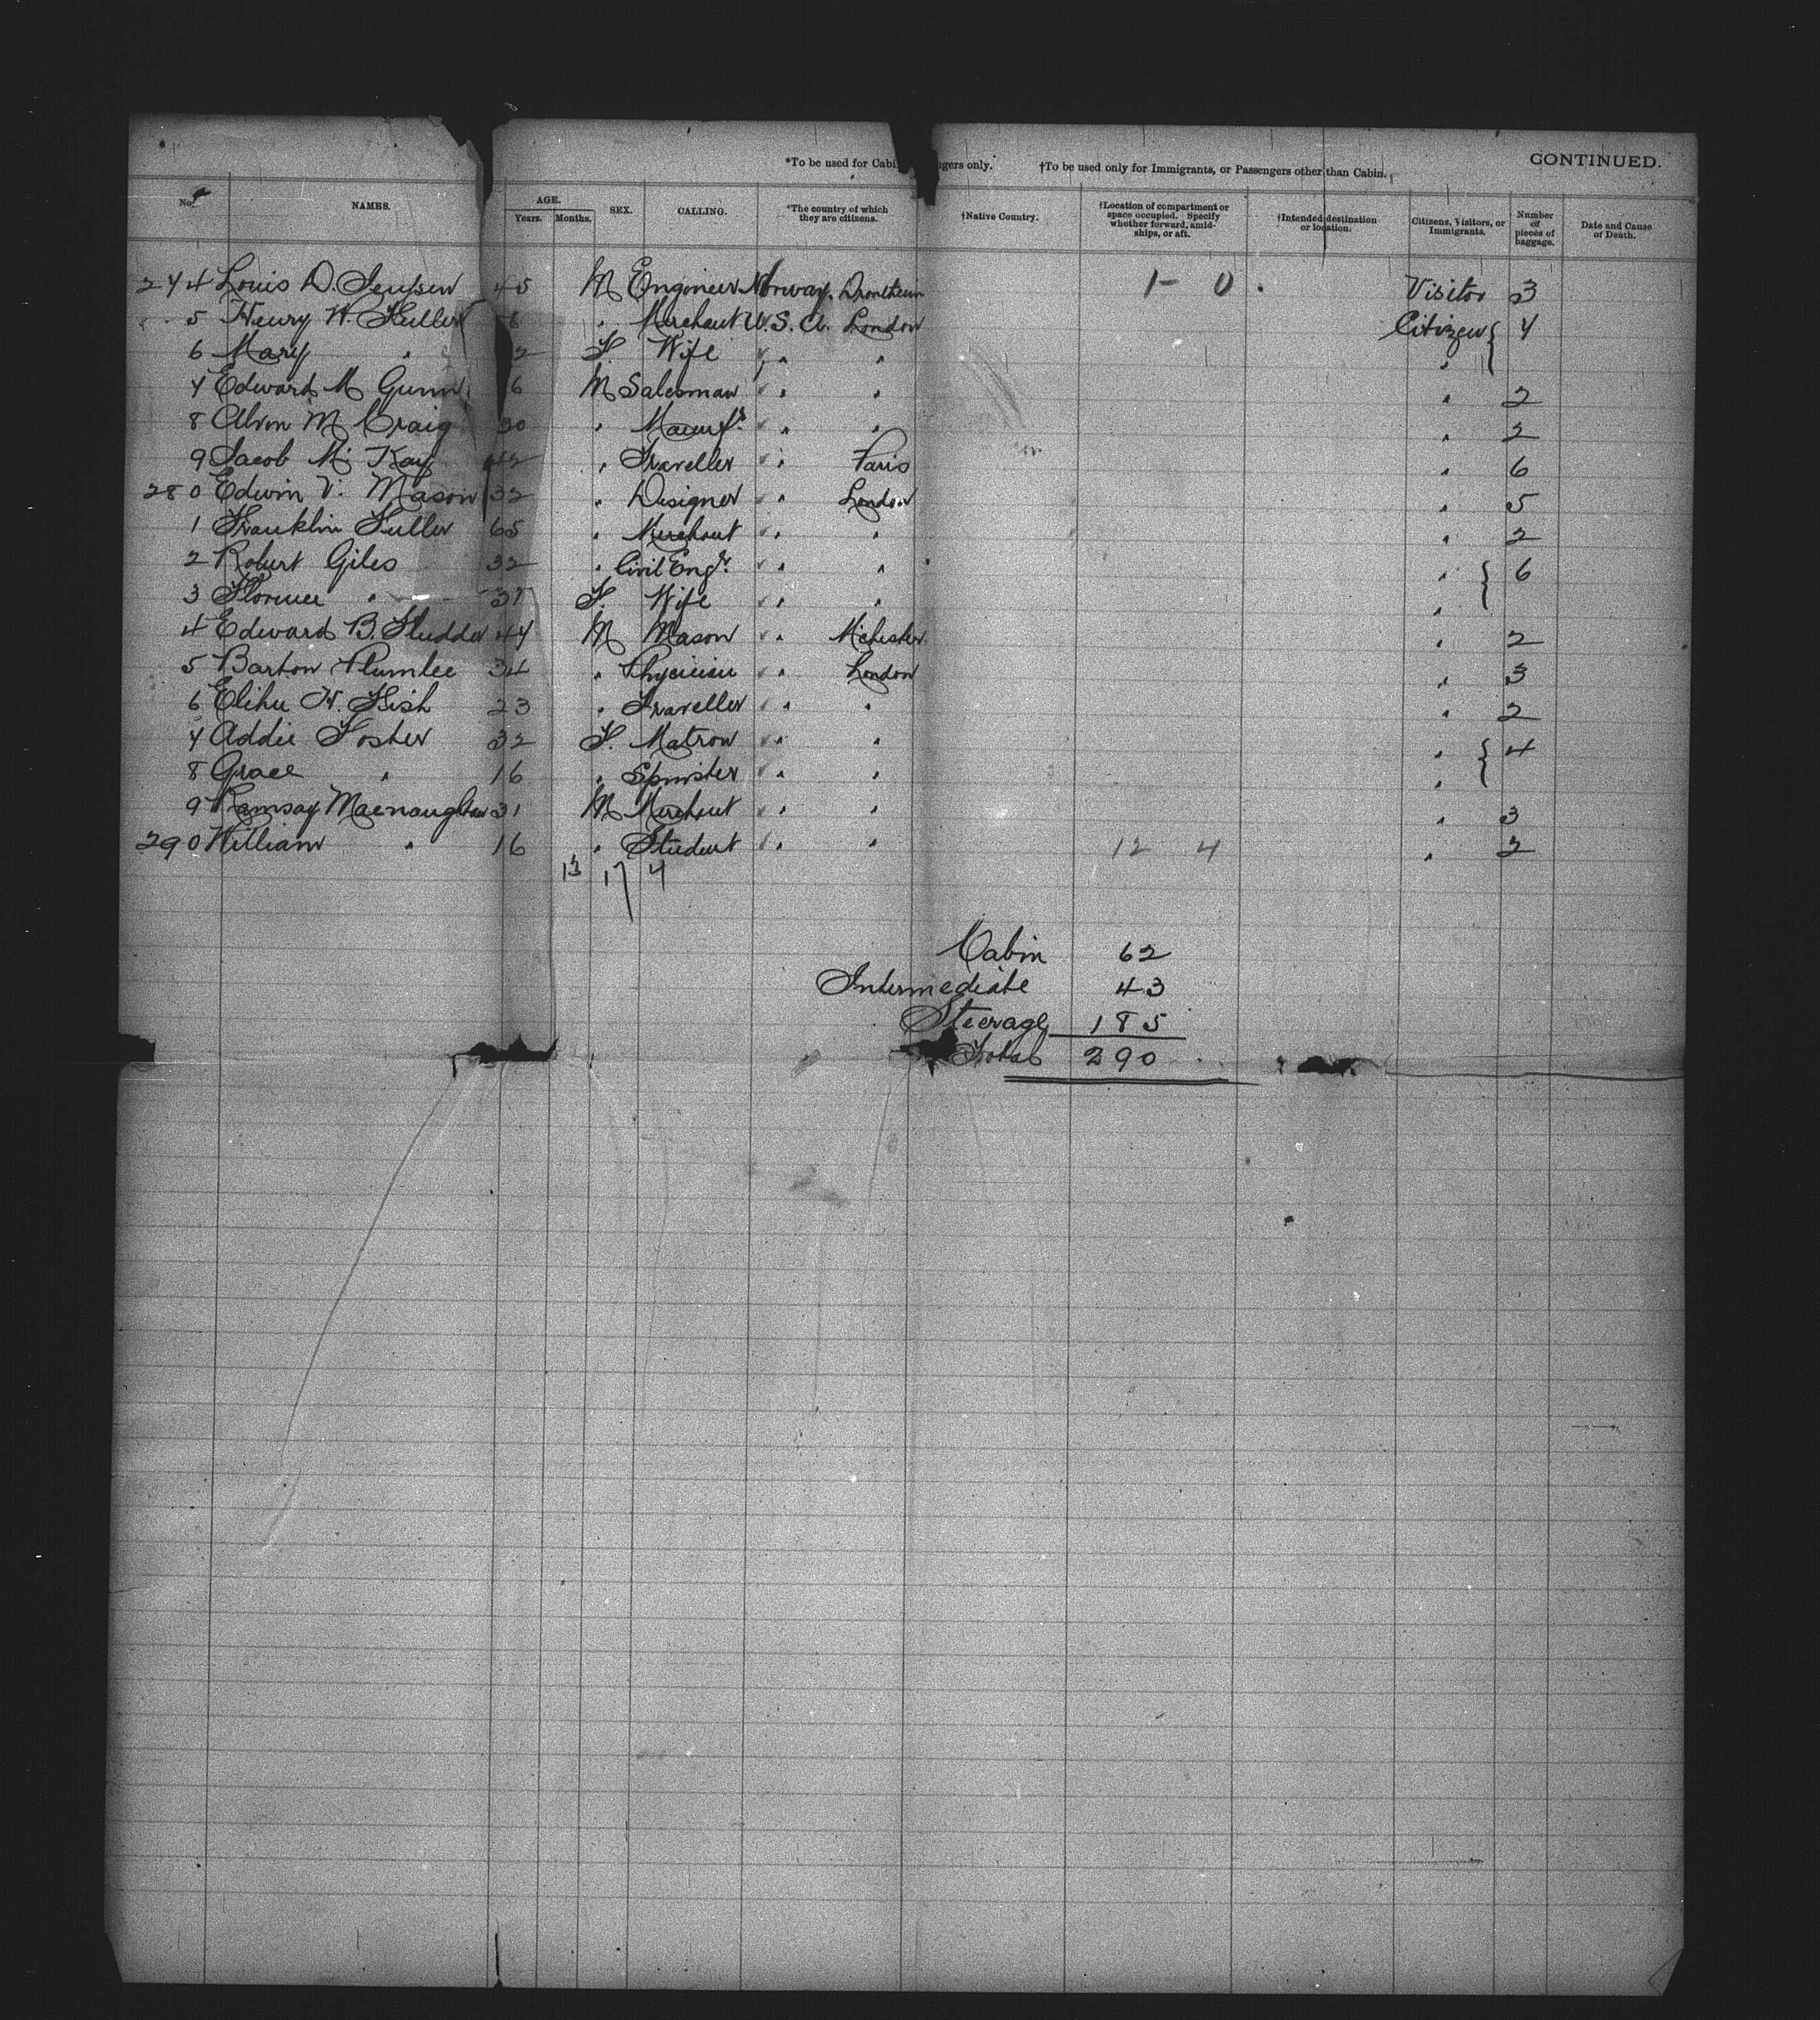 CONTINUED.
*To be used for Cabi ngers only. †To be used only for Immigrants, or Passengers other than Cabin.
No. NAMES. AGE. Years. Months. SEX. CALLING. *The country of which they are citizens. †Native Country. †Location of compartment or space occupied. Specify whether forward, amidships, or aft. †Intended destination or location. Citizens, Visitors, or Immigrants. Number of pieces of baggage. Date and Cause of Death.
274 Louis D. 45 M Engineer Norway. Drontheim 1- 0 Visitor 3
5 Henry H. Fuller 6 " Merchant U.S.A. London Citizen { 7
6 Mary " 2 F. Wife " " "
7 Edward M Gunn 6 M Salesman " " " 2
8 Alvin M Craig 30 " Manufr. " " " 2
9 Jacob Mc Kay 42 " Traveller " Paris " 6
280 Edwin V. Mason 32 " Designer " London " 5
1 Franklin Fuller 65 " Merchant " " " 2
2 Robert Giles 32 " Civil Engr. " " " { 6
3 Florence " 37 F. Wife " " "
4 Edward B. 47 M Mason " Mchester " 2
5 Barton Plumlee 34 " Physician " London " 3
6 Elihu H. Fish 23 " Traveller " " " 2
7 Addie Foster 32 F. Matron " " " { 4
8 Grace " 16 " Spinster " " "
9 Ramsay Macnaughtan 31 M Merchant " " " 3
290 William " 16 " Student " " 12 4 " 2
13 17 4
Cabin 62
Intermediate 43
Steerage 185
Total 290